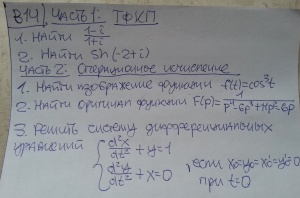 В14) Часть 1: ТФКП
1. Найти (1-i)/(1+i)
2. Найти Sh(-2+i)
Часть 2: Операционное исчисление
1. Найти изображение функции f(t)=cos³t
2. Найти оригинал функции F(p)=1/
3. Решить систему дифференциальных
уравнений { d²x/dt² + y = 1
d²y/dt² + x = 0 , если x₀=y₀=x₀'=y₀'=0
при t=0